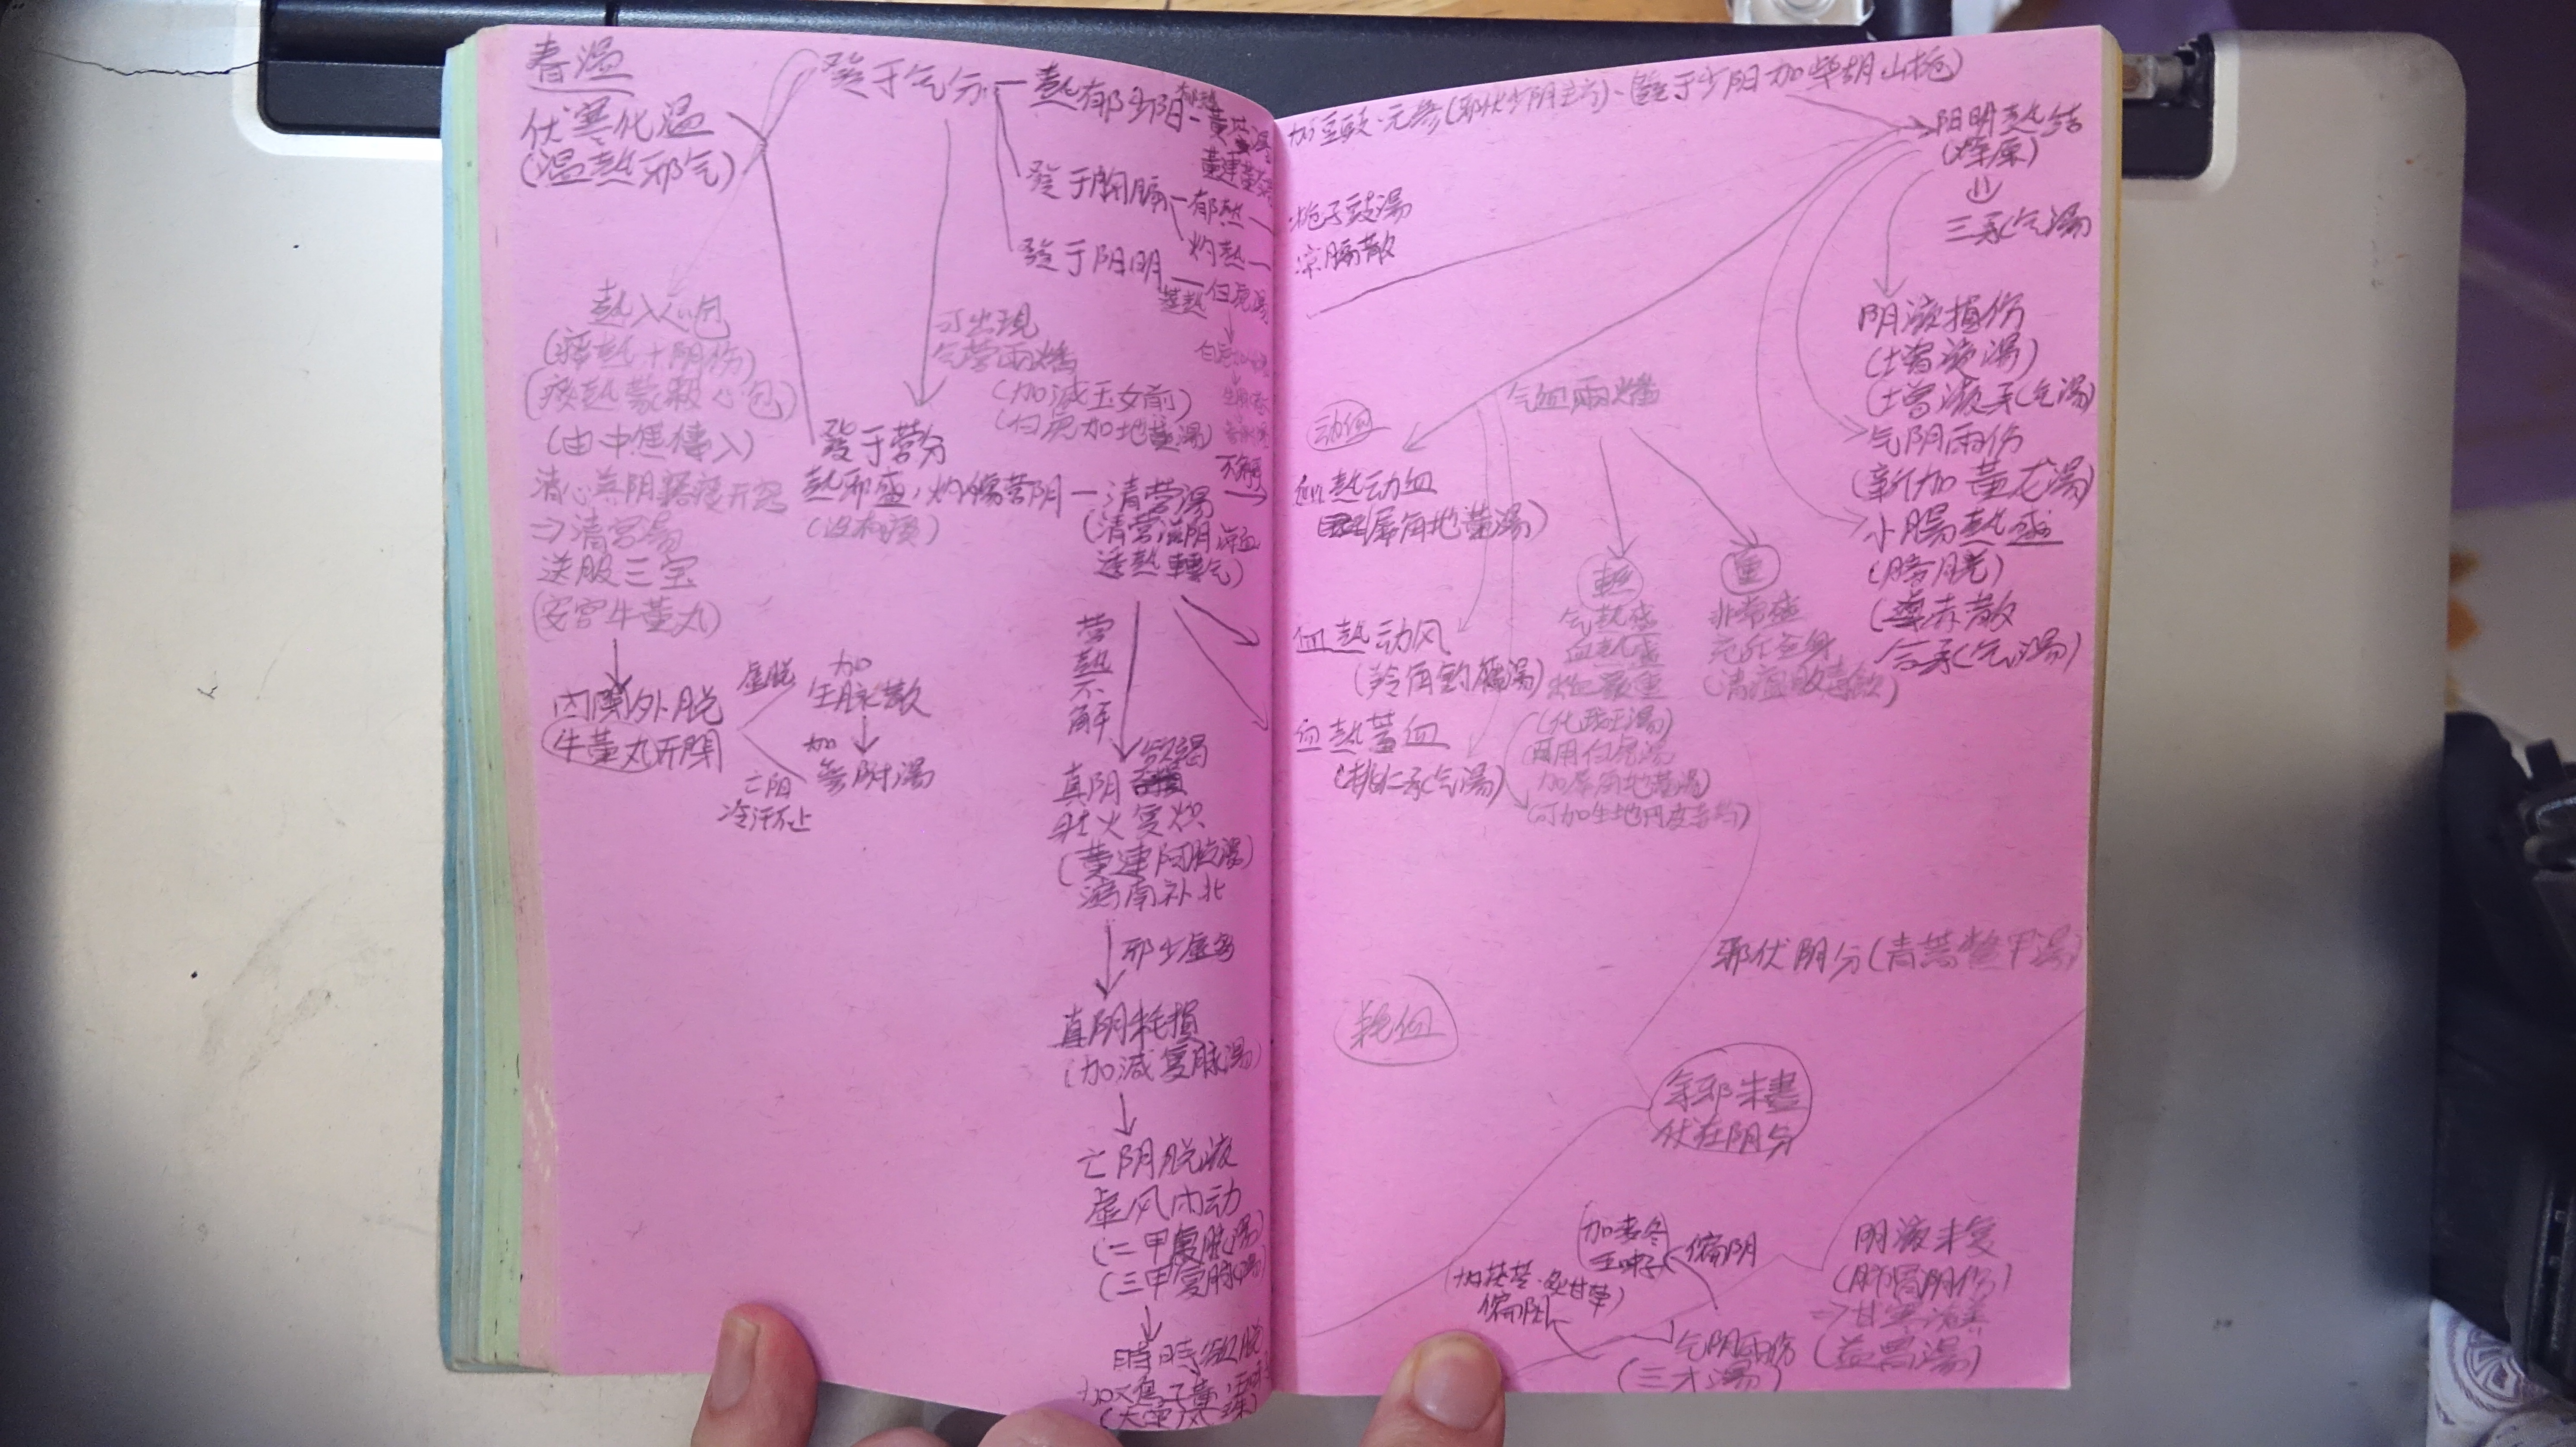 春温
伏寒化温
(温熱邪气)
發于气分
熱郁少阳
黄芩湯
發于胸膈
郁熱
灼熱
發于阳明
白虎湯
熱入心包
(痰熱+阴伤)
(痰熱蒙蔽心包)
(由中焦傳入)
清心益阴豁痰开窍
⇒清宮湯
送服三宝
(安宮牛黄丸)
可出現
气营兩燔
(加减玉女煎)
(白虎加地黄湯)
發于营分
熱邪盛,灼傷营阴
(没有痰)
清营湯
(清营滋阴凉血
透熱轉气)
内閉外脱
牛黄丸开閉
虚脱
加
生脉散
加
參附湯
亡阳
冷汗不止
营熱不解
真阴欲竭
壮火复炽
(黄連阿胶湯)
瀉南补北
邪少虚多
真阴耗損
(加减复脉湯)
亡阴脱液
虚风内动
(二甲复脉湯)
(三甲复脉湯)
時時欲脱
(大定风珠)
加豆豉.元參(邪伏少阴主方).發于少阳加柴胡山梔)
梔子豉湯
凉膈散
阳明熱結
三承(气湯)
阴液損伤
(增液湯)
(增液承气湯)
气阴兩伤
(新加黄龙湯)
小腸熱盛
(導赤散
承气湯)
动血
血熱动血
犀角地黄湯)
血熱动风
(羚角鈎藤湯)
血熱蓄血
(桃仁承气湯)
气血兩燔
輕
气熱盛
血熱盛
(化斑湯)
加犀角地黄湯)
(可加生地丹皮赤芍)
重
非常盛
(清瘟败毒飲)
邪伏阴分(青蒿鱉甲湯)
耗血
余邪未盡
伏在阴分
加麦冬
五味子
偏阴
加茯苓.炙甘草)
偏阳
气阴兩伤
(三才湯)
阴液未复
(肺胃阴伤)
⇒甘寒滋养
(益胃湯)